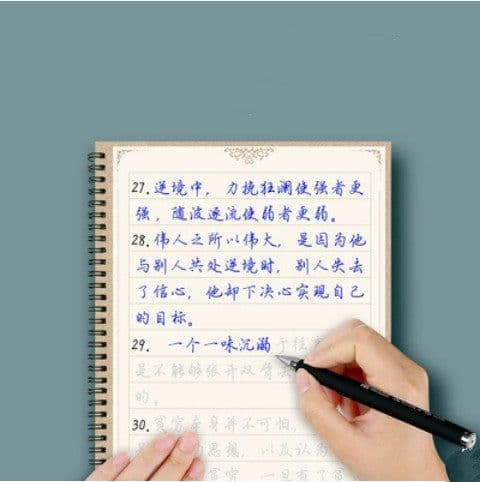 27.逆境中，力挽狂澜使强者更
强，随波逐流使弱者更弱。
28.伟人之所以伟大，是因为他
与别人共处逆境时，别人失去
了信心，他却下决心实现自己
的目标。
29. 一个一味沉溺于往
是不能够张开双臂去
的。
30.贫穷本身并不可怕，
思想，以及认为
贫穷，一旦有了贫